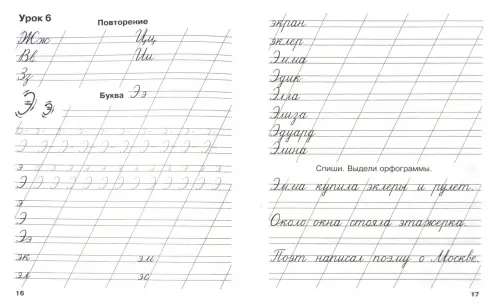 Урок 6
Повторение
Жж Цц
Вв Ии
Зз
Буква Ээ
э э э э э э э э э
Э Э Э Э Э Э Э Э Э
Э Э Э Э Э Э Э Э Э Э Э Э Э
э
Э
Ээ
эк эм
эл эс
16
экран
эклер
Эмма
Эдик
Элла
Элиза
Эдуард
Элина
Спиши. Выдели орфограммы.
Эмма купила эклеры и рулет.
Около окна стояла этажерка.
Поэт написал поэму о Москве.
17